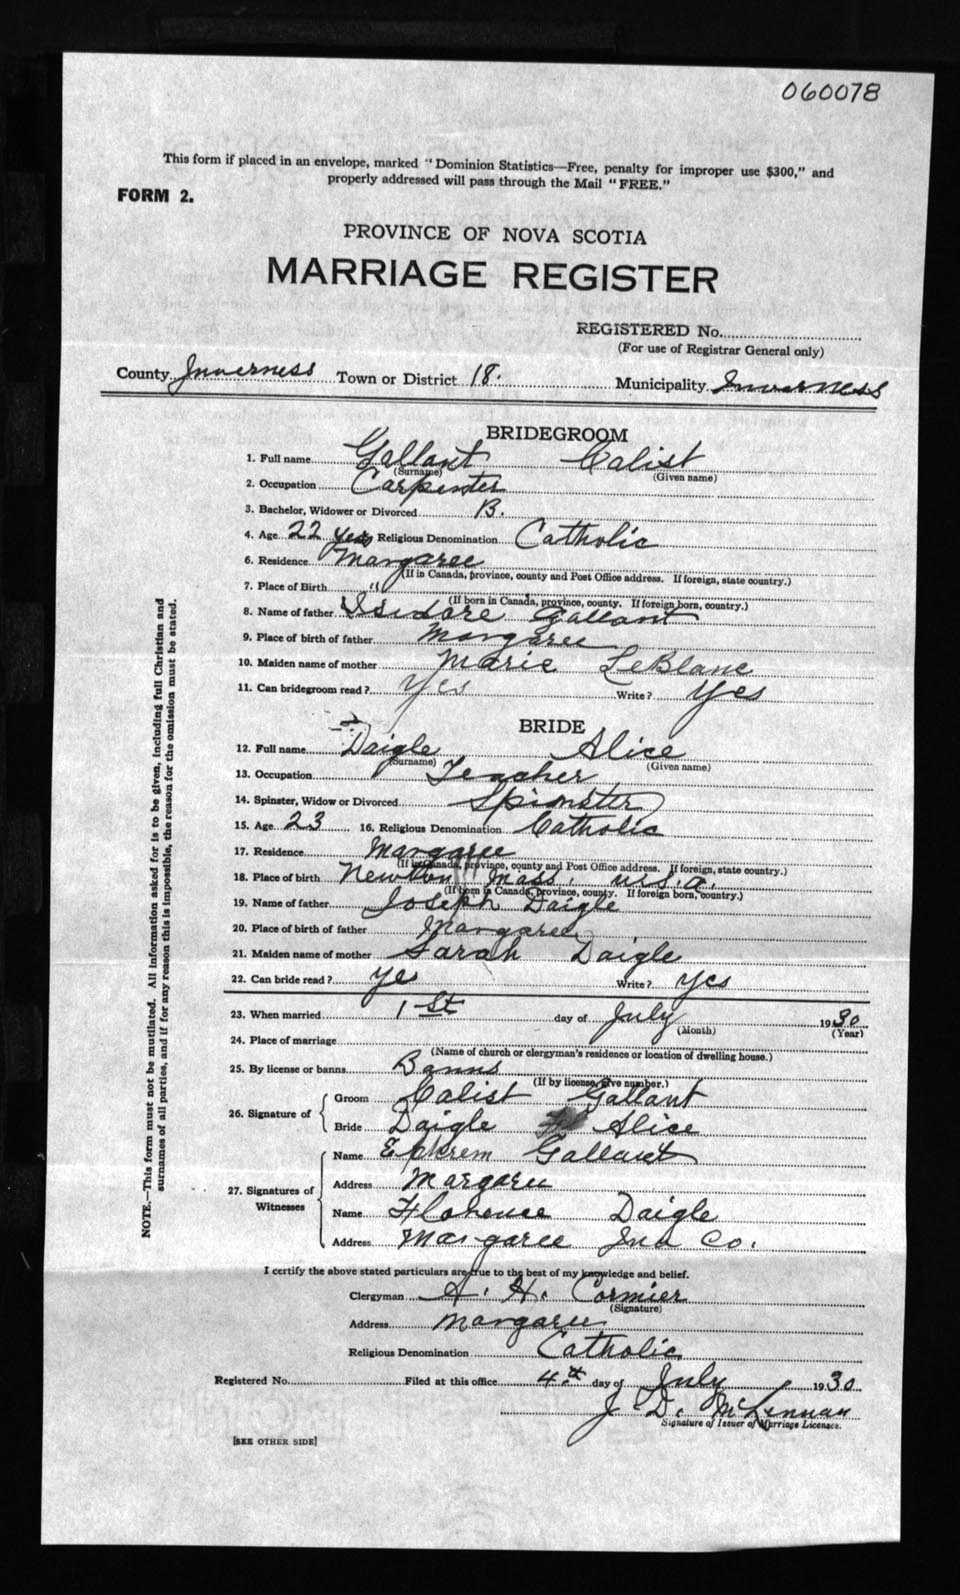 060078
This form if placed in an envelope, marked "Dominion Statistics—Free, penalty for improper use $300," and
properly addressed will pass through the Mail "FREE."
FORM 2.
PROVINCE OF NOVA SCOTIA
MARRIAGE REGISTER
REGISTERED No.
(For use of Registrar General only)
County Inverness Town or District 18. Municipality Inverness
BRIDEGROOM
1. Full name Gallant Calist
(Surname) (Given name)
2. Occupation Carpenter
3. Bachelor, Widower or Divorced B.
4. Age 22 yrs Religious Denomination Catholic
6. Residence Margaree
(If in Canada, province, county and Post Office address. If foreign, state country.)
7. Place of Birth "
(If born in Canada, province, county. If foreign born, country.)
8. Name of father Isidore Gallant
9. Place of birth of father Margaree
10. Maiden name of mother Marie LeBlanc
11. Can bridegroom read? Yes Write? Yes
BRIDE
12. Full name Daigle Alice
(Surname) (Given name)
13. Occupation Teacher
14. Spinster, Widow or Divorced Spinster
15. Age 23 16. Religious Denomination Catholic
17. Residence Margaree
(If in Canada, province, county and Post Office address. If foreign, state country.)
18. Place of birth Newton Mass, U.S.A.
(If born in Canada, province, county. If foreign born, country.)
19. Name of father Joseph Daigle
20. Place of birth of father Margaree
21. Maiden name of mother Sarah Daigle
22. Can bride read? Yes Write? Yes
23. When married 1st day of July 1930
(Month) (Year)
24. Place of marriage
(Name of church or clergyman's residence or location of dwelling house.)
25. By license or banns Banns
(If by license, give number.)
26. Signature of
Groom Calist Gallant
Bride Daigle Alice
27. Signatures of Witnesses
Name Ephrem Gallant
Address Margaree
Name Florence Daigle
Address Margaree Inv Co.
I certify the above stated particulars are true to the best of my knowledge and belief.
Clergyman A. H. Cormier
(Signature)
Address Margaree
Religious Denomination Catholic
Registered No. Filed at this office 4th day of July 1930
J. D. McLennan
Signature of Issuer of Marriage Licenses.
[SEE OTHER SIDE]
NOTE.—This form must not be mutilated. All information asked for is to be given, including full Christian and
surnames of all parties, and if for any reason this is impossible, the reason for the omission must be stated.